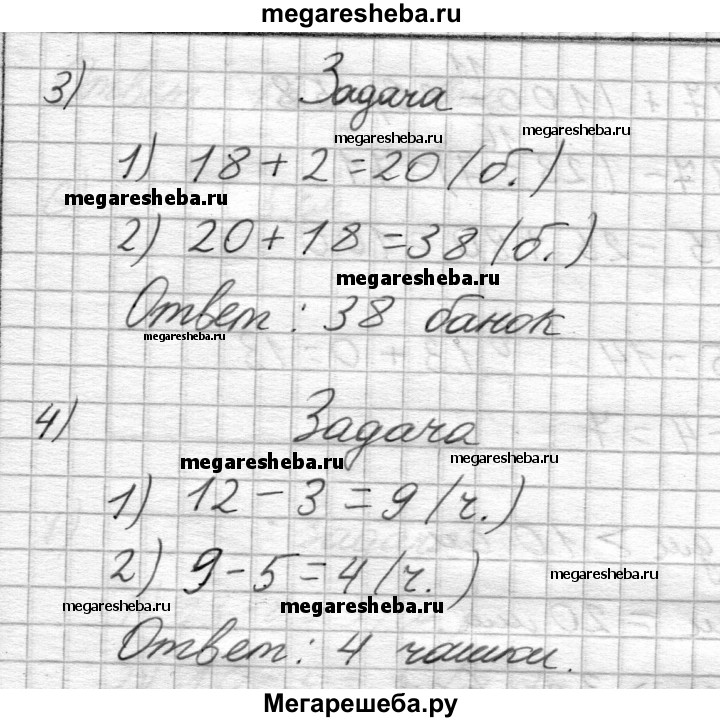 megaresheba.ru
3) Задача
megaresheba.ru
megaresheba.ru
1) 18 + 2 = 20 (б.)
megaresheba.ru
2) 20 + 18 = 38 (б.)
megaresheba.ru
Ответ : 38 банок
megaresheba.ru
4) Задача
megaresheba.ru
megaresheba.ru
1) 12 - 3 = 9 (ч.)
2) 9 - 5 = 4 (ч.)
megaresheba.ru
megaresheba.ru
megaresheba.ru
Ответ : 4 чашки.
Мегарешеба.ру